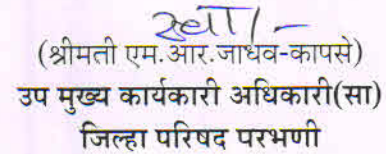 स्वा/-
(श्रीमती एम.आर.जाधव-कापसे)
उप मुख्य कार्यकारी अधिकारी(सा)
जिल्हा परिषद परभणी